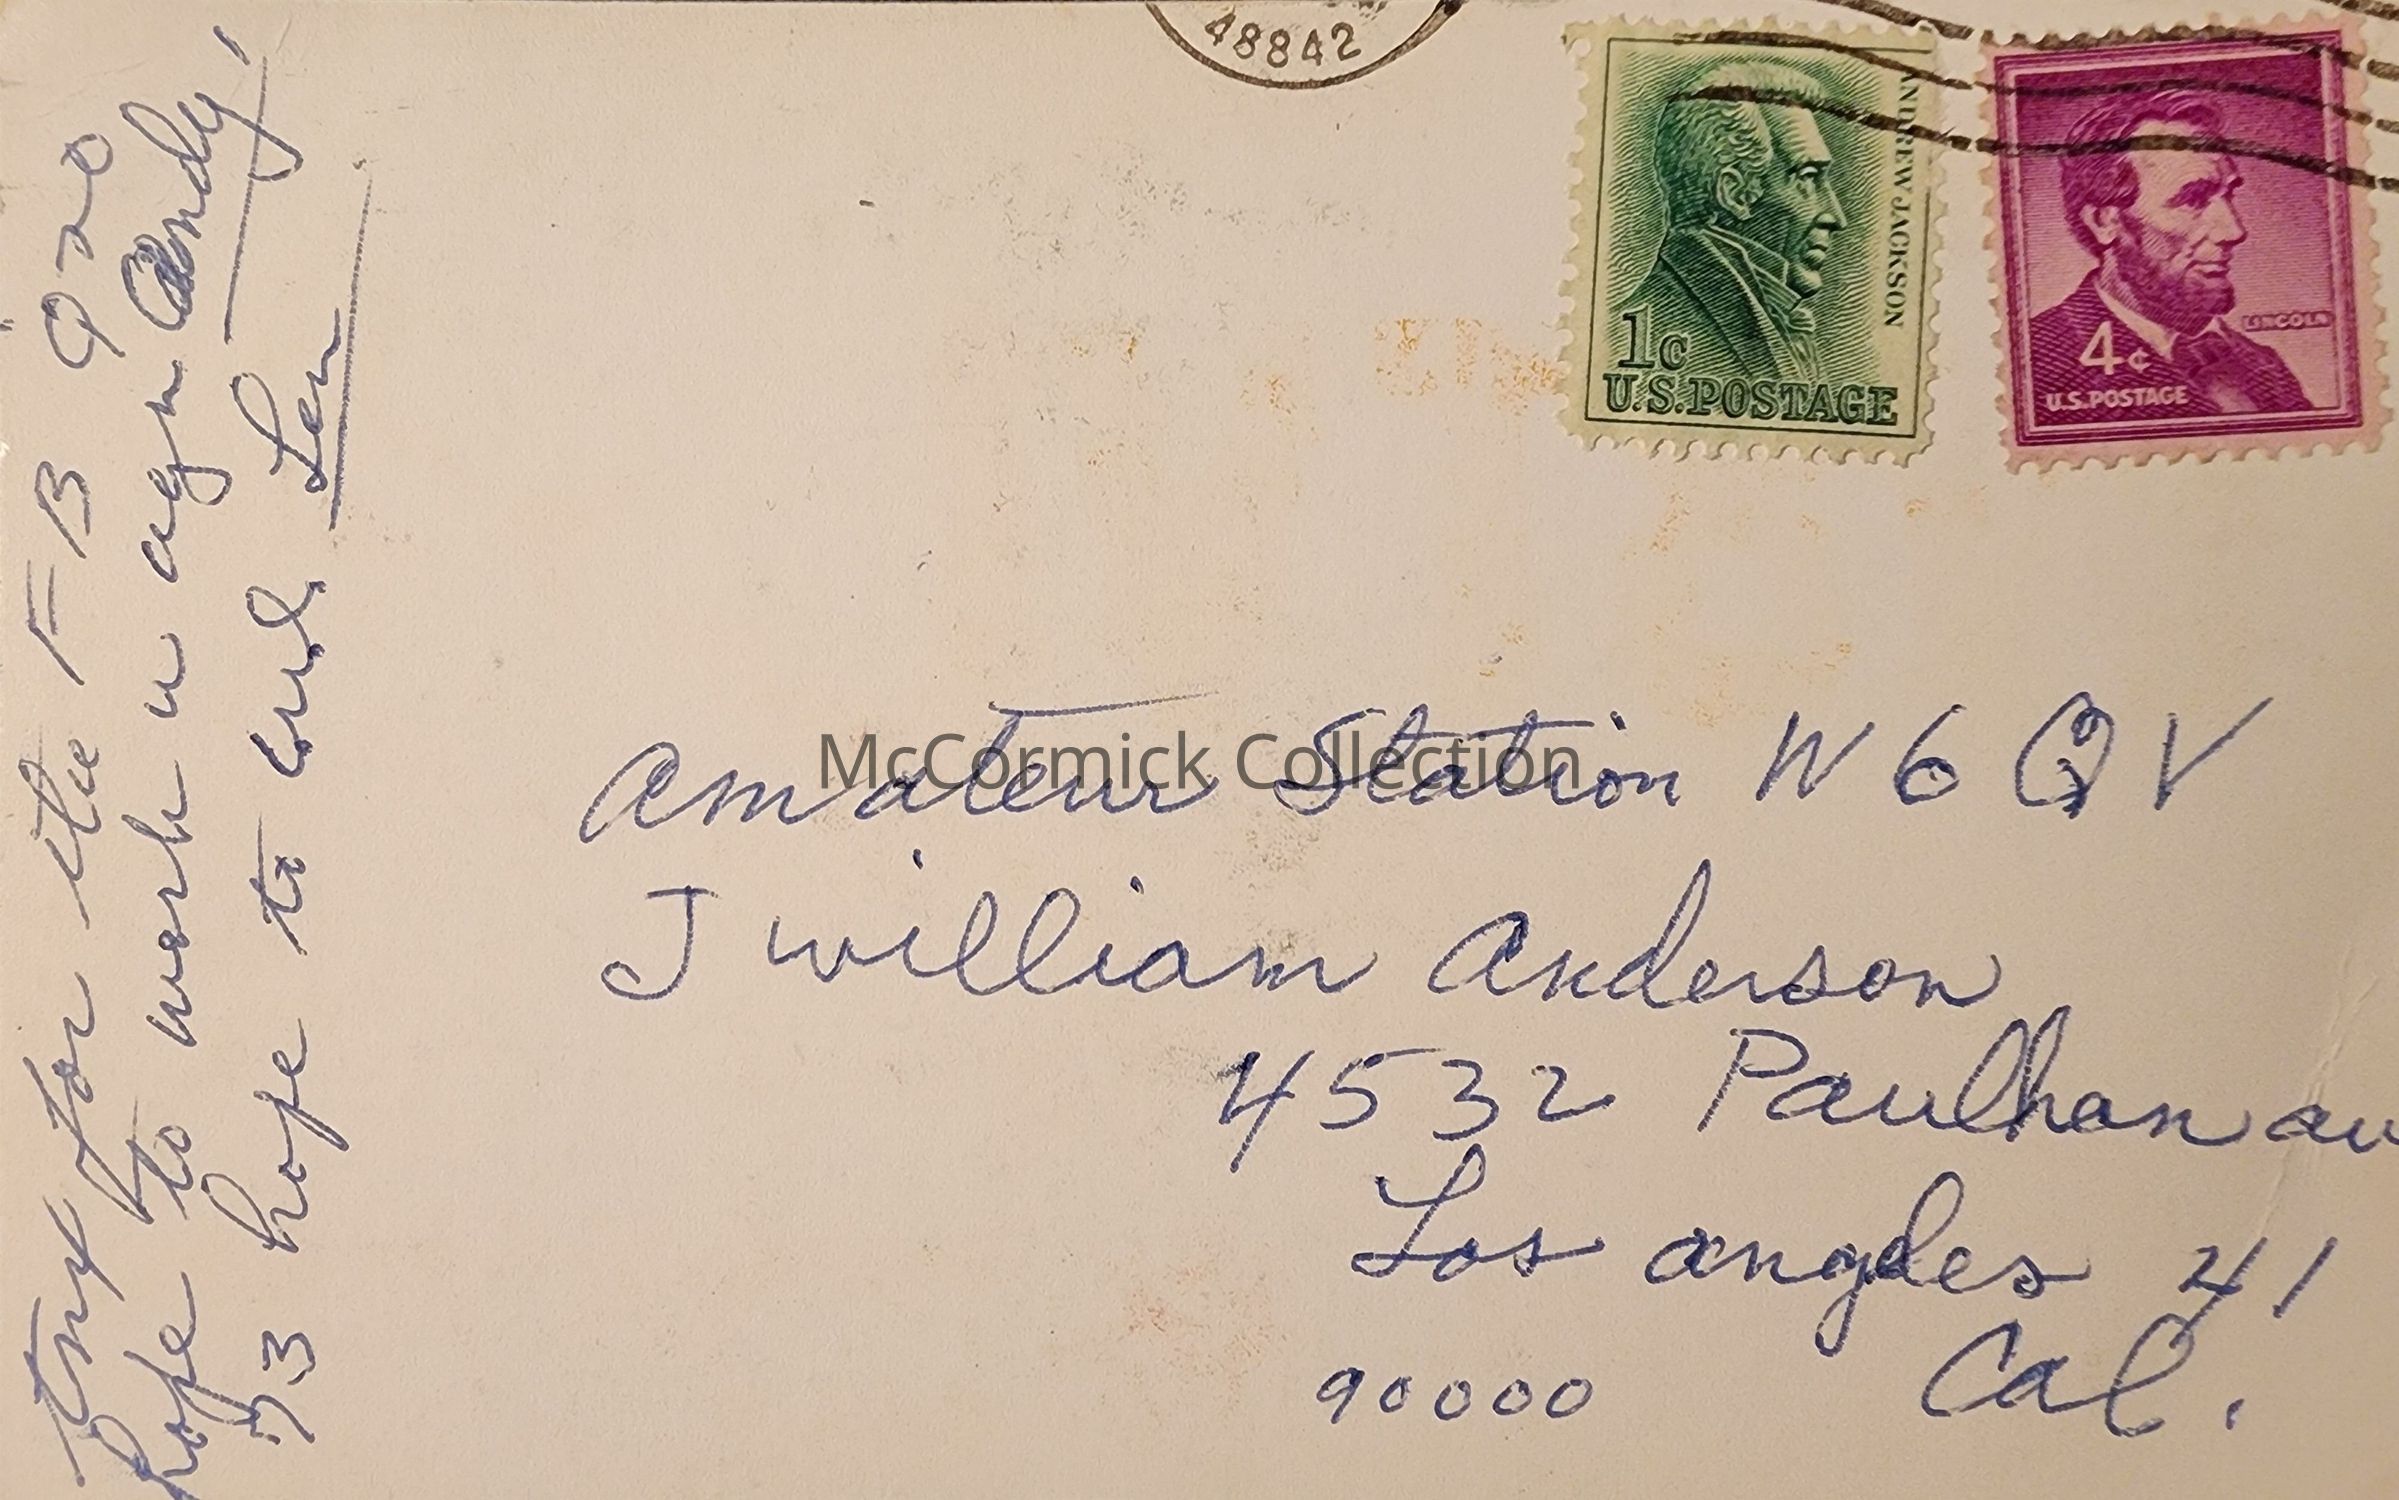 48842
ANDREW JACKSON
1c
U.S. POSTAGE
LINCOLN
4¢
U.S. POSTAGE
tnx for the FB QSO
hope to work u agn Andy,
73 hope to cul. Len
Amateur Station W6QV
J William Anderson
4532 Paulhan av
Los Angeles 41
Cal.
90000
McCormick Collection